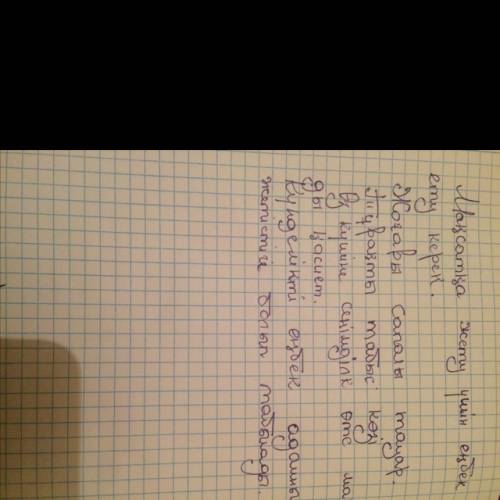 Мақсатқа жету үшін еңбек
ету керек.
Жоғары сапалы тауар.
Тұрақты табыс көзі
Өз күшіне сенімділік өте ма
ды қасиет.
Күнделікті еңбек адамны
жетістігі болып табылады.